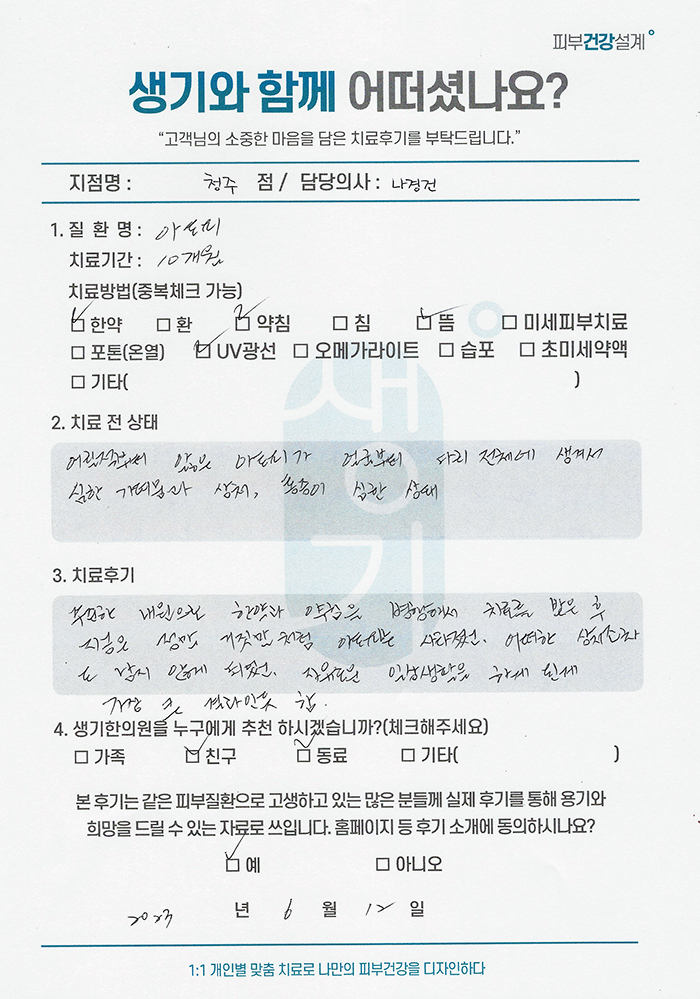 피부건강설계
생기와 함께 어떠셨나요?
“고객님의 소중한 마음을 담은 치료후기를 부탁드립니다.”
지점명 : 청주 점 / 담당의사 : 나경건
1. 질 환 명 : 아토피
치료기간 : 10개월
치료방법(중복체크 가능)
☑ 한약 ☐ 환 ☑ 약침 ☐ 침 ☑ 뜸 ☐ 미세피부치료
☐ 포톤(온열) ☑ UV광선 ☐ 오메가라이트 ☐ 습포 ☐ 초미세약액
☐ 기타( )
2. 치료 전 상태
어릴적부터 앓은 아토피가 얼굴부터 다리 전체에 생겨서
심한 가려움과 상처, 심한 상태
3. 치료후기
꾸준한 내원으로 한약과 약침을 병행해서 치료를 받은 후
지금은 정말 거짓말처럼 아토피는 사라졌선. 어떠한 상처조차
도 남지 않게 되었선. 일상생활을 하게 된게
가장 큰 변화인듯 함.
4. 생기한의원을 누구에게 추천 하시겠습니까?(체크해주세요)
☐ 가족 ☑ 친구 ☑ 동료 ☐ 기타( )
본 후기는 같은 피부질환으로 고생하고 있는 많은 분들께 실제 후기를 통해 용기와
희망을 드릴 수 있는 자료로 쓰입니다. 홈페이지 등 후기 소개에 동의하시나요?
☑ 예 ☐ 아니오
2023 년 6 월 12 일
1:1 개인별 맞춤 치료로 나만의 피부건강을 디자인하다
생기